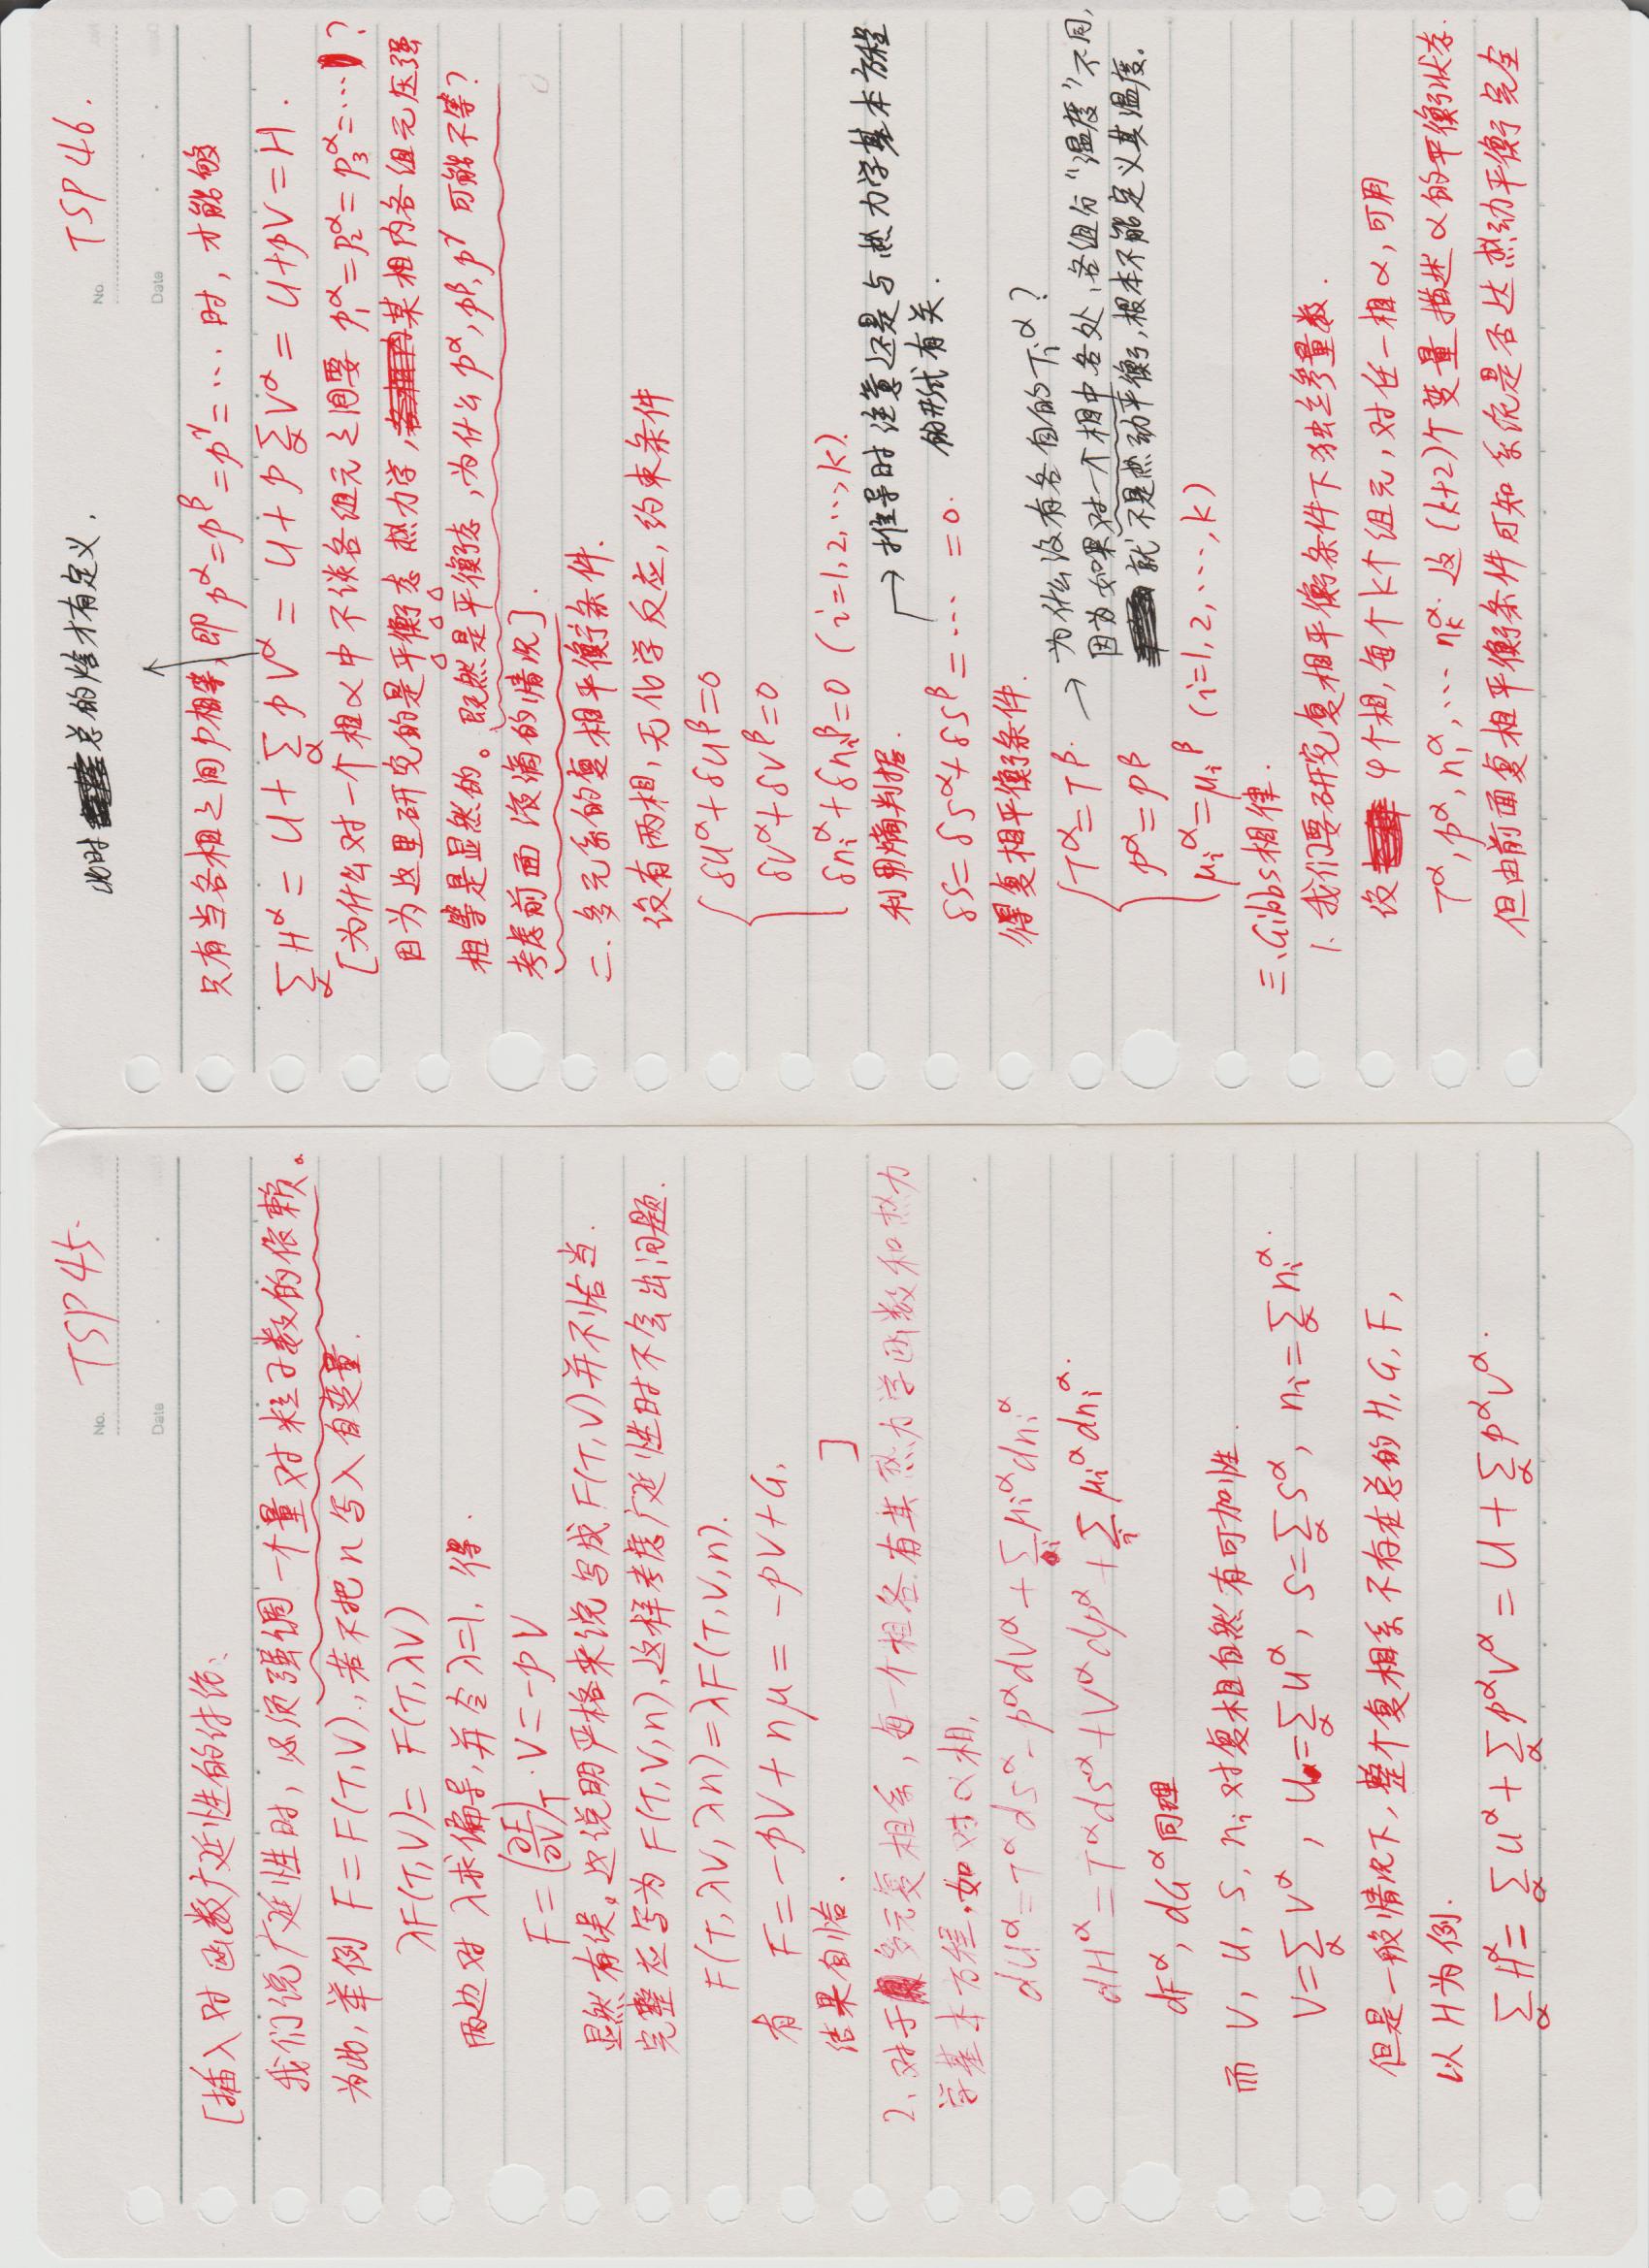 TSP 45.
No.
Date
[插入对函数广延性的讨论:
我们说广延性时,必须强调一个量对粒子数的依赖。
为此,举例 F=F(T,V).,若不把n写入自变量.
λF(T,V)= F(T,λV)
两边对λ求偏导,并令λ=1,得.
F=(∂F/∂V)_T·V=-pV
显然有误。这说明严格来说写成F(T,V)并不恰当.
完整应写为F(T,V,n),这样考虑广延性时不会出问题.
F(T,λV,λn)=λF(T,V,n).
有 F=-pV+nμ=-pV+G,
结果自恰. ]
2、对于多元复相系,每一个相各有其热力学函数和热力
学基本方程,如对α相,
dU^α=T^αdS^α-p^αdV^α+∑_i μ_i^αdn_i^α
dH^α=T^αdS^α+V^αdp^α+∑_i μ_i^αdn_i^α.
dF^α, dG^α同理
而 V, U, S, n_i对复相自然有可加性.
V=∑_α V^α, U=∑_α U^α, S=∑_α S^α, n_i=∑_α n_i^α.
但是一般情况下,整个复相系不存在总的H, G, F,
以H为例.
∑_α H^α=∑_α U^α+∑_α p^αV^α=U+∑_α p^αV^α.
TSP 46.
No
Date
此时总的焓才有定义.
只有当各相之间p相等,即p^α=p^β=p^γ=…时,才能够
∑_α H^α=U+∑_α pV^α=U+p∑_α V^α=U+pV=H.
[为什么对一个相α中不谈各组元之间要p_1^α=p_2^α=p_3^α=…?
因为这里研究的是平衡态热力学,某相内各组元压强
相等是显然的。既然是平衡态,为什么p^α,p^β,p^γ可能不等?
考虑前面液滴的情况].
二.多元系的复相平衡条件.
设有两相,无化学反应,约束条件
δU^α+δU^β=0
δV^α+δV^β=0
δn_i^α+δn_i^β=0 (i=1,2,…,k).
利用熵判据.
→推导时注意还是与热力学基本方程
的形式有关.
δS=δS^α+δS^β=… =0.
得复相平衡条件.
T^α=T^β.
→为什么没有各自的T_i^α?
因为如果对一个相中各处,各组分“温度”不同,
就不是热动平衡,根本不能定义其温度。
p^α=p^β
μ_i^α=μ_i^β (i=1,2,…,k)
三、Gibbs相律.
1.我们要研究复相平衡条件下独立参量数.
设φ个相,每个k个组元,对任一相α,可用
T^α,p^α,n_1^α,…n_k^α.这(k+2)个变量描述α的平衡状态.
但由前面复相平衡条件可知系统是否达热动平衡完全